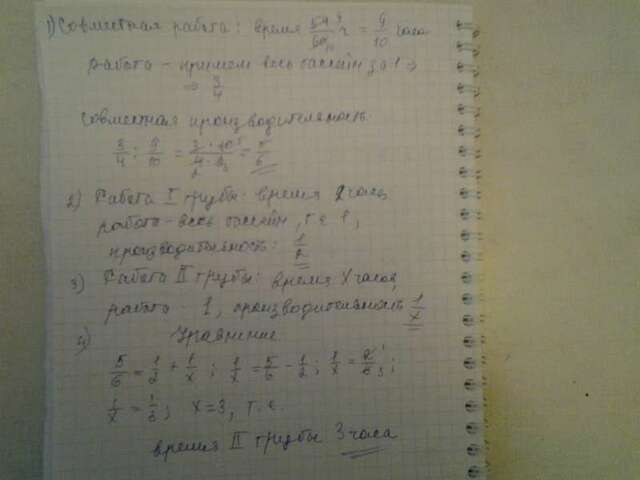 1) Совместная работа: время 54/60 ч = 9/10 часа
Работа - примем весь бассейн за 1 ⇒
⇒ 3/4
Совместная производительность:
3/4 : 9/10 = 3·10/4·9 = 5/6
2) Работа I трубы: время 2 часа,
работа - весь бассейн, т.е 1,
производительность: 1/2
3) Работа II трубы: время x часов,
работа - 1, производительность 1/x
4) Уравнение
5/6 = 1/2 + 1/x ; 1/x = 5/6 - 1/2 ; 1/x = 2/6 ;
1/x = 1/3 ; x=3, т.е.
время II трубы 3 часа